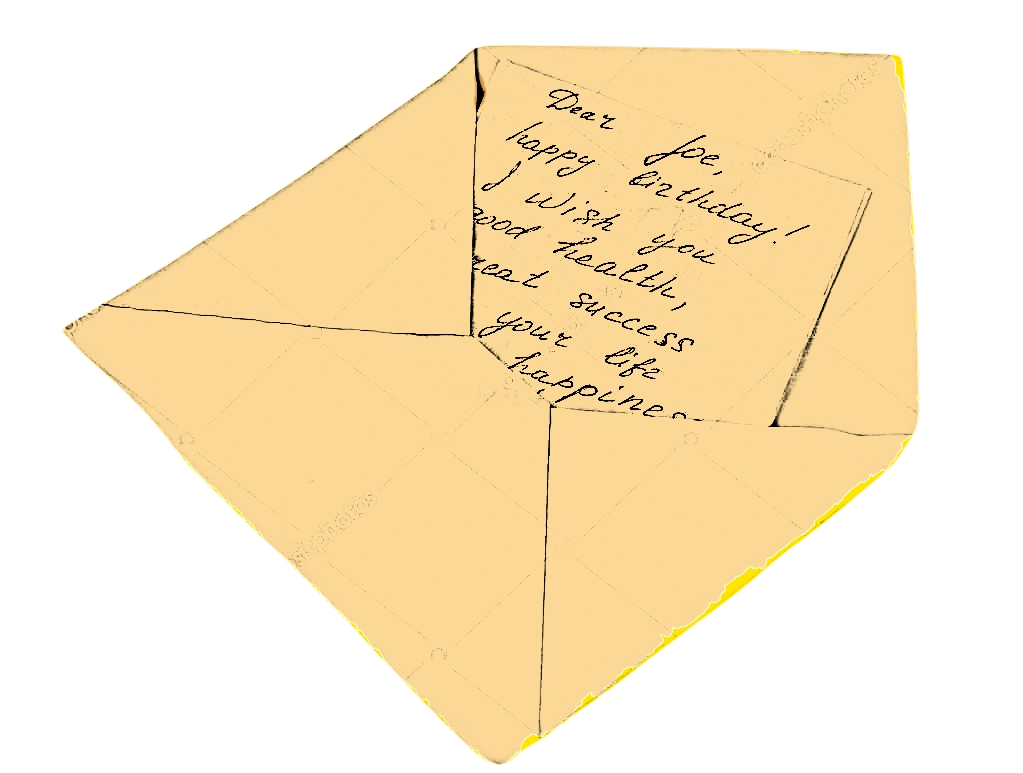 Dear Joe,
happy birthday!
I wish you
good health,
reat success
your life
happines